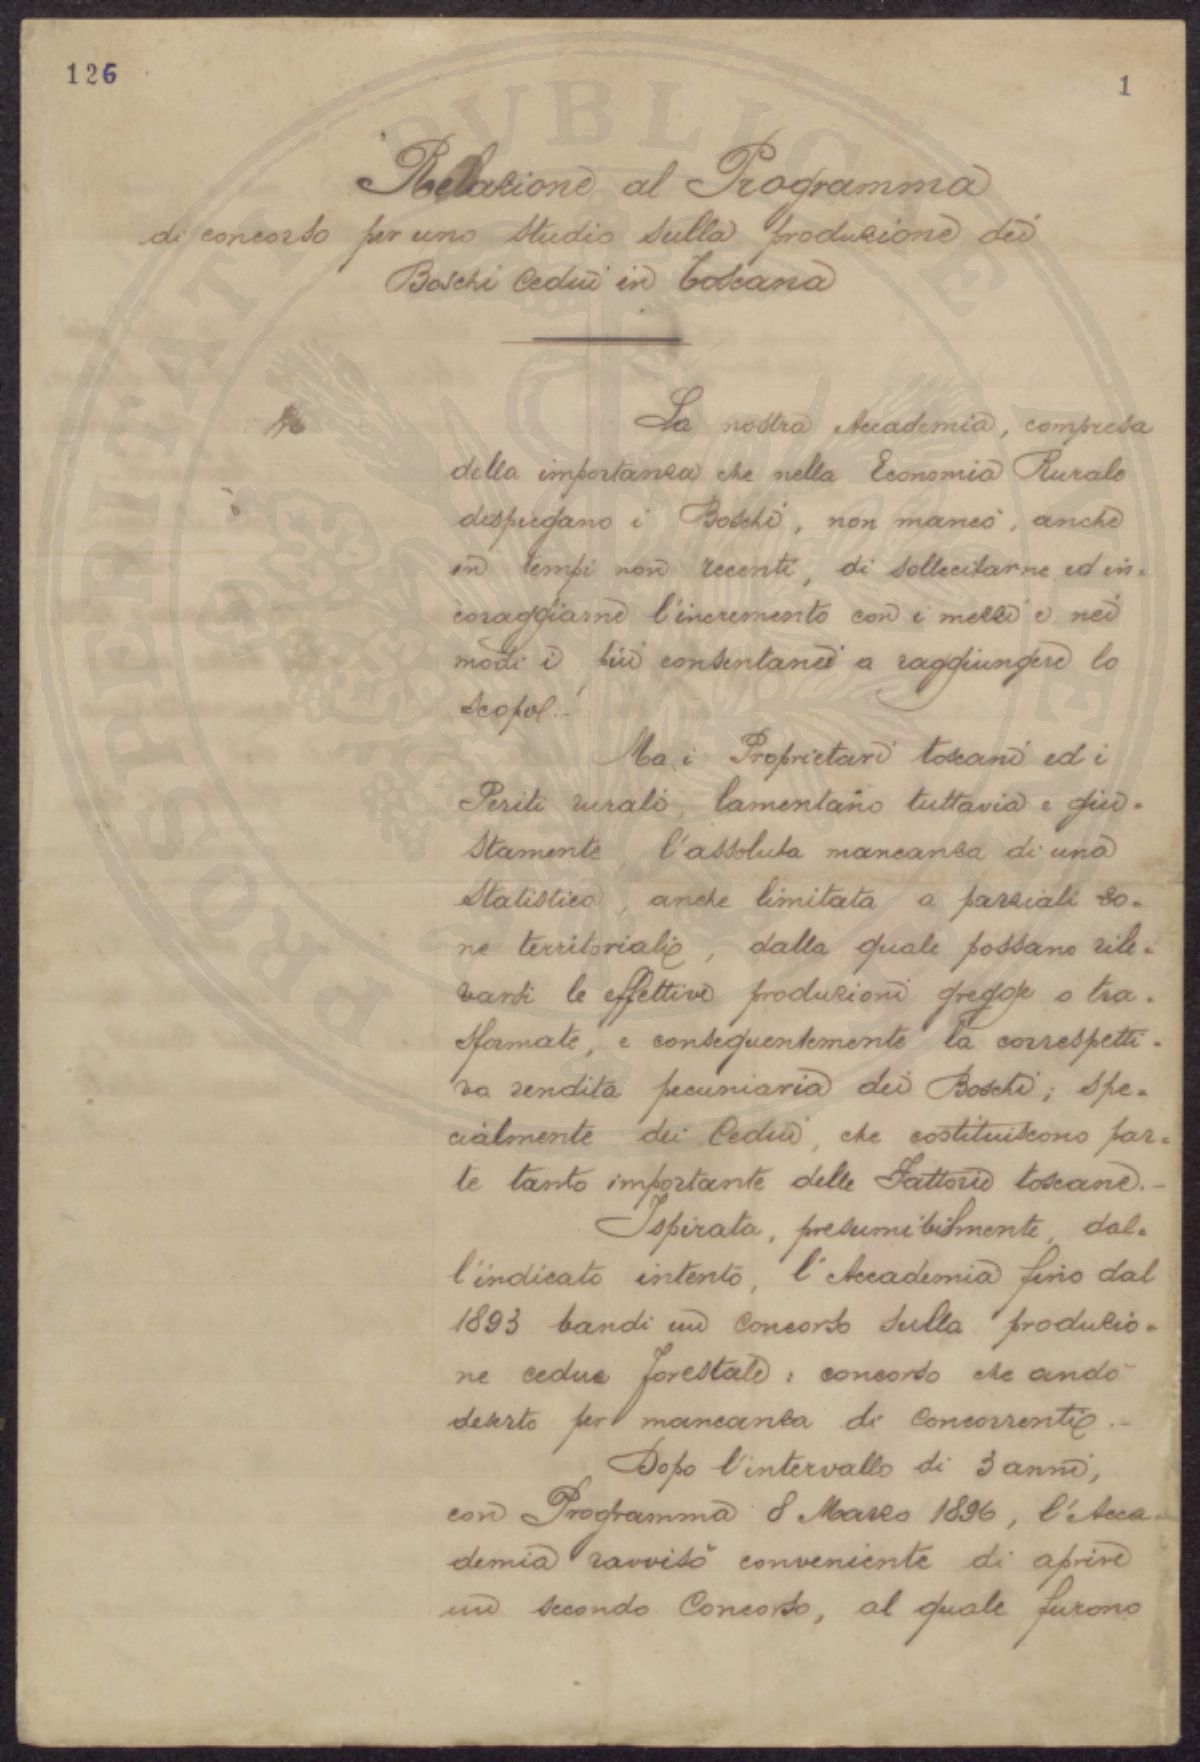 126
1
Relazione al Programma
di concorso per uno studio sulla produzione dei
Boschi Cedui in Toscana
La nostra Accademia, compresa
della importanza che nella Economia Rurale
dispiegano i Boschi, non mancò, anche
in tempi non recenti, di sollecitarne ed in=
coraggiarne l'incremento con i mezzi e nei
modi i più consentanei a raggiungere lo
scopo.
Ma i Proprietari toscani ed i
Periti rurali, lamentano tuttavia e giu=
stamente l'assoluta mancanza di una
Statistica, anche limitata a parziali zo=
ne territoriali, dalla quale possano rile=
varsi le effettive produzioni gregge o tra=
sformate, e conseguentemente la correspetti=
va rendita pecuniaria dei Boschi; spe=
cialmente dei Cedui, che costituiscono par=
te tanto importante delle Fattorie toscane.-
Ispirata, presumibilmente, dal=
l'indicato intento, l'Accademia fino dal
1893 bandì un Concorso sulla produzio=
ne cedua forestale: concorso che andò
deserto per mancanza di Concorrenti.-
Dopo l'intervallo di 3 anni,
con Programma 8 Marzo 1896, l'Acca=
demia ravvisò conveniente di aprire
un secondo Concorso, al quale furono
PROSPERITATI PUBLICAE